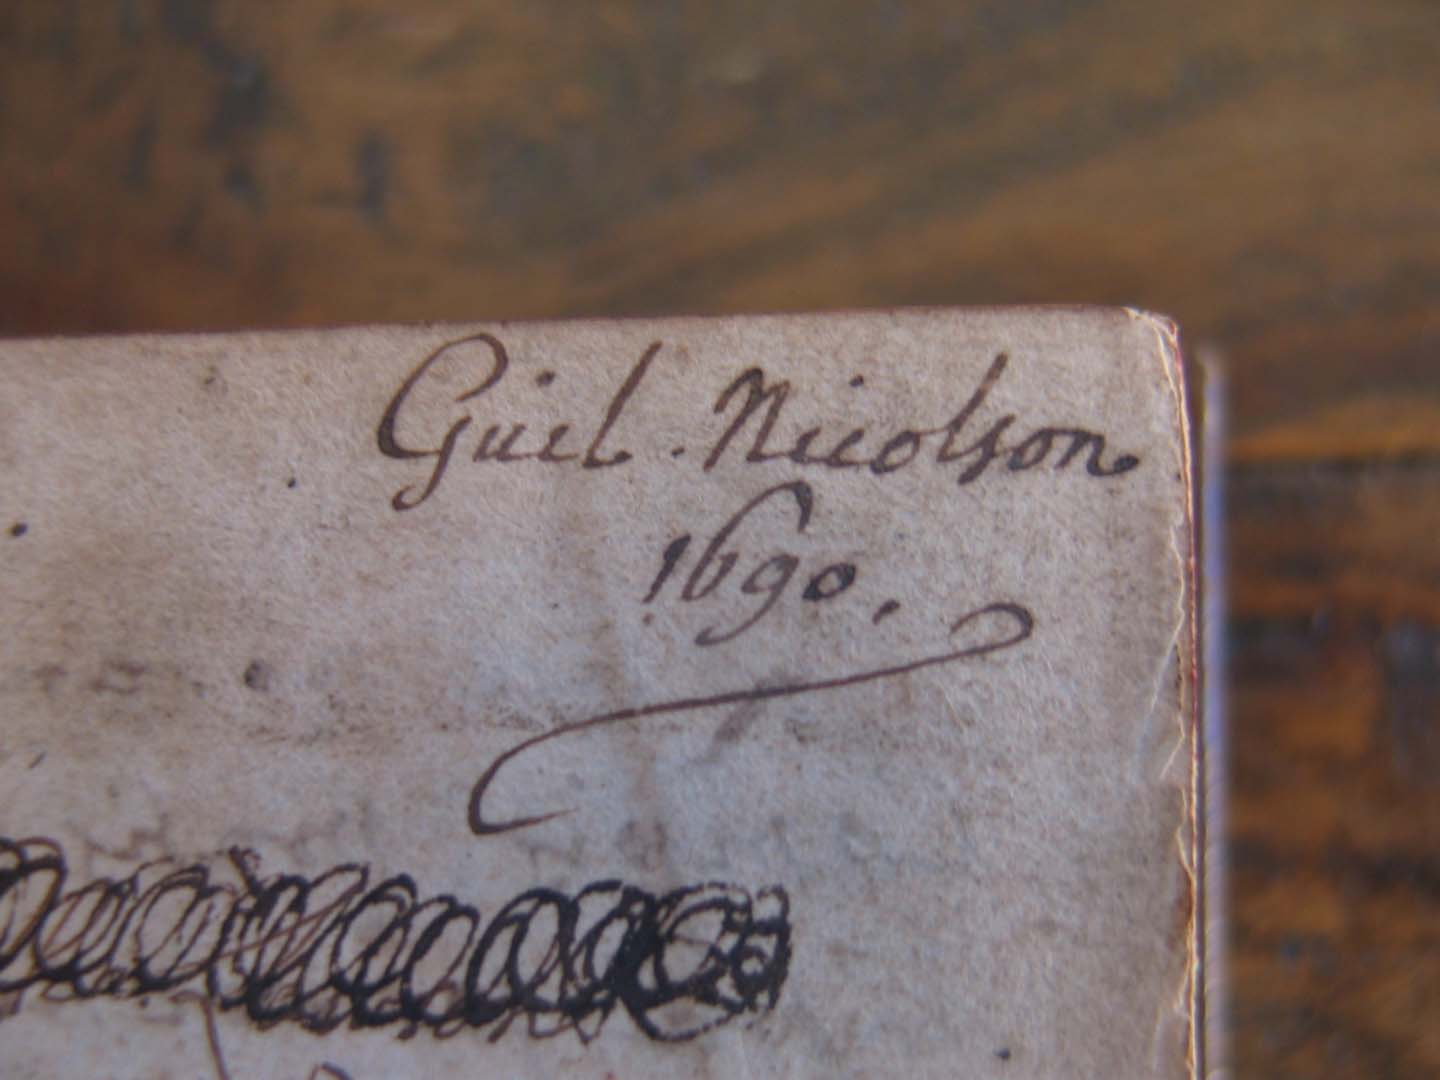 Guil. Nicolson
1690.